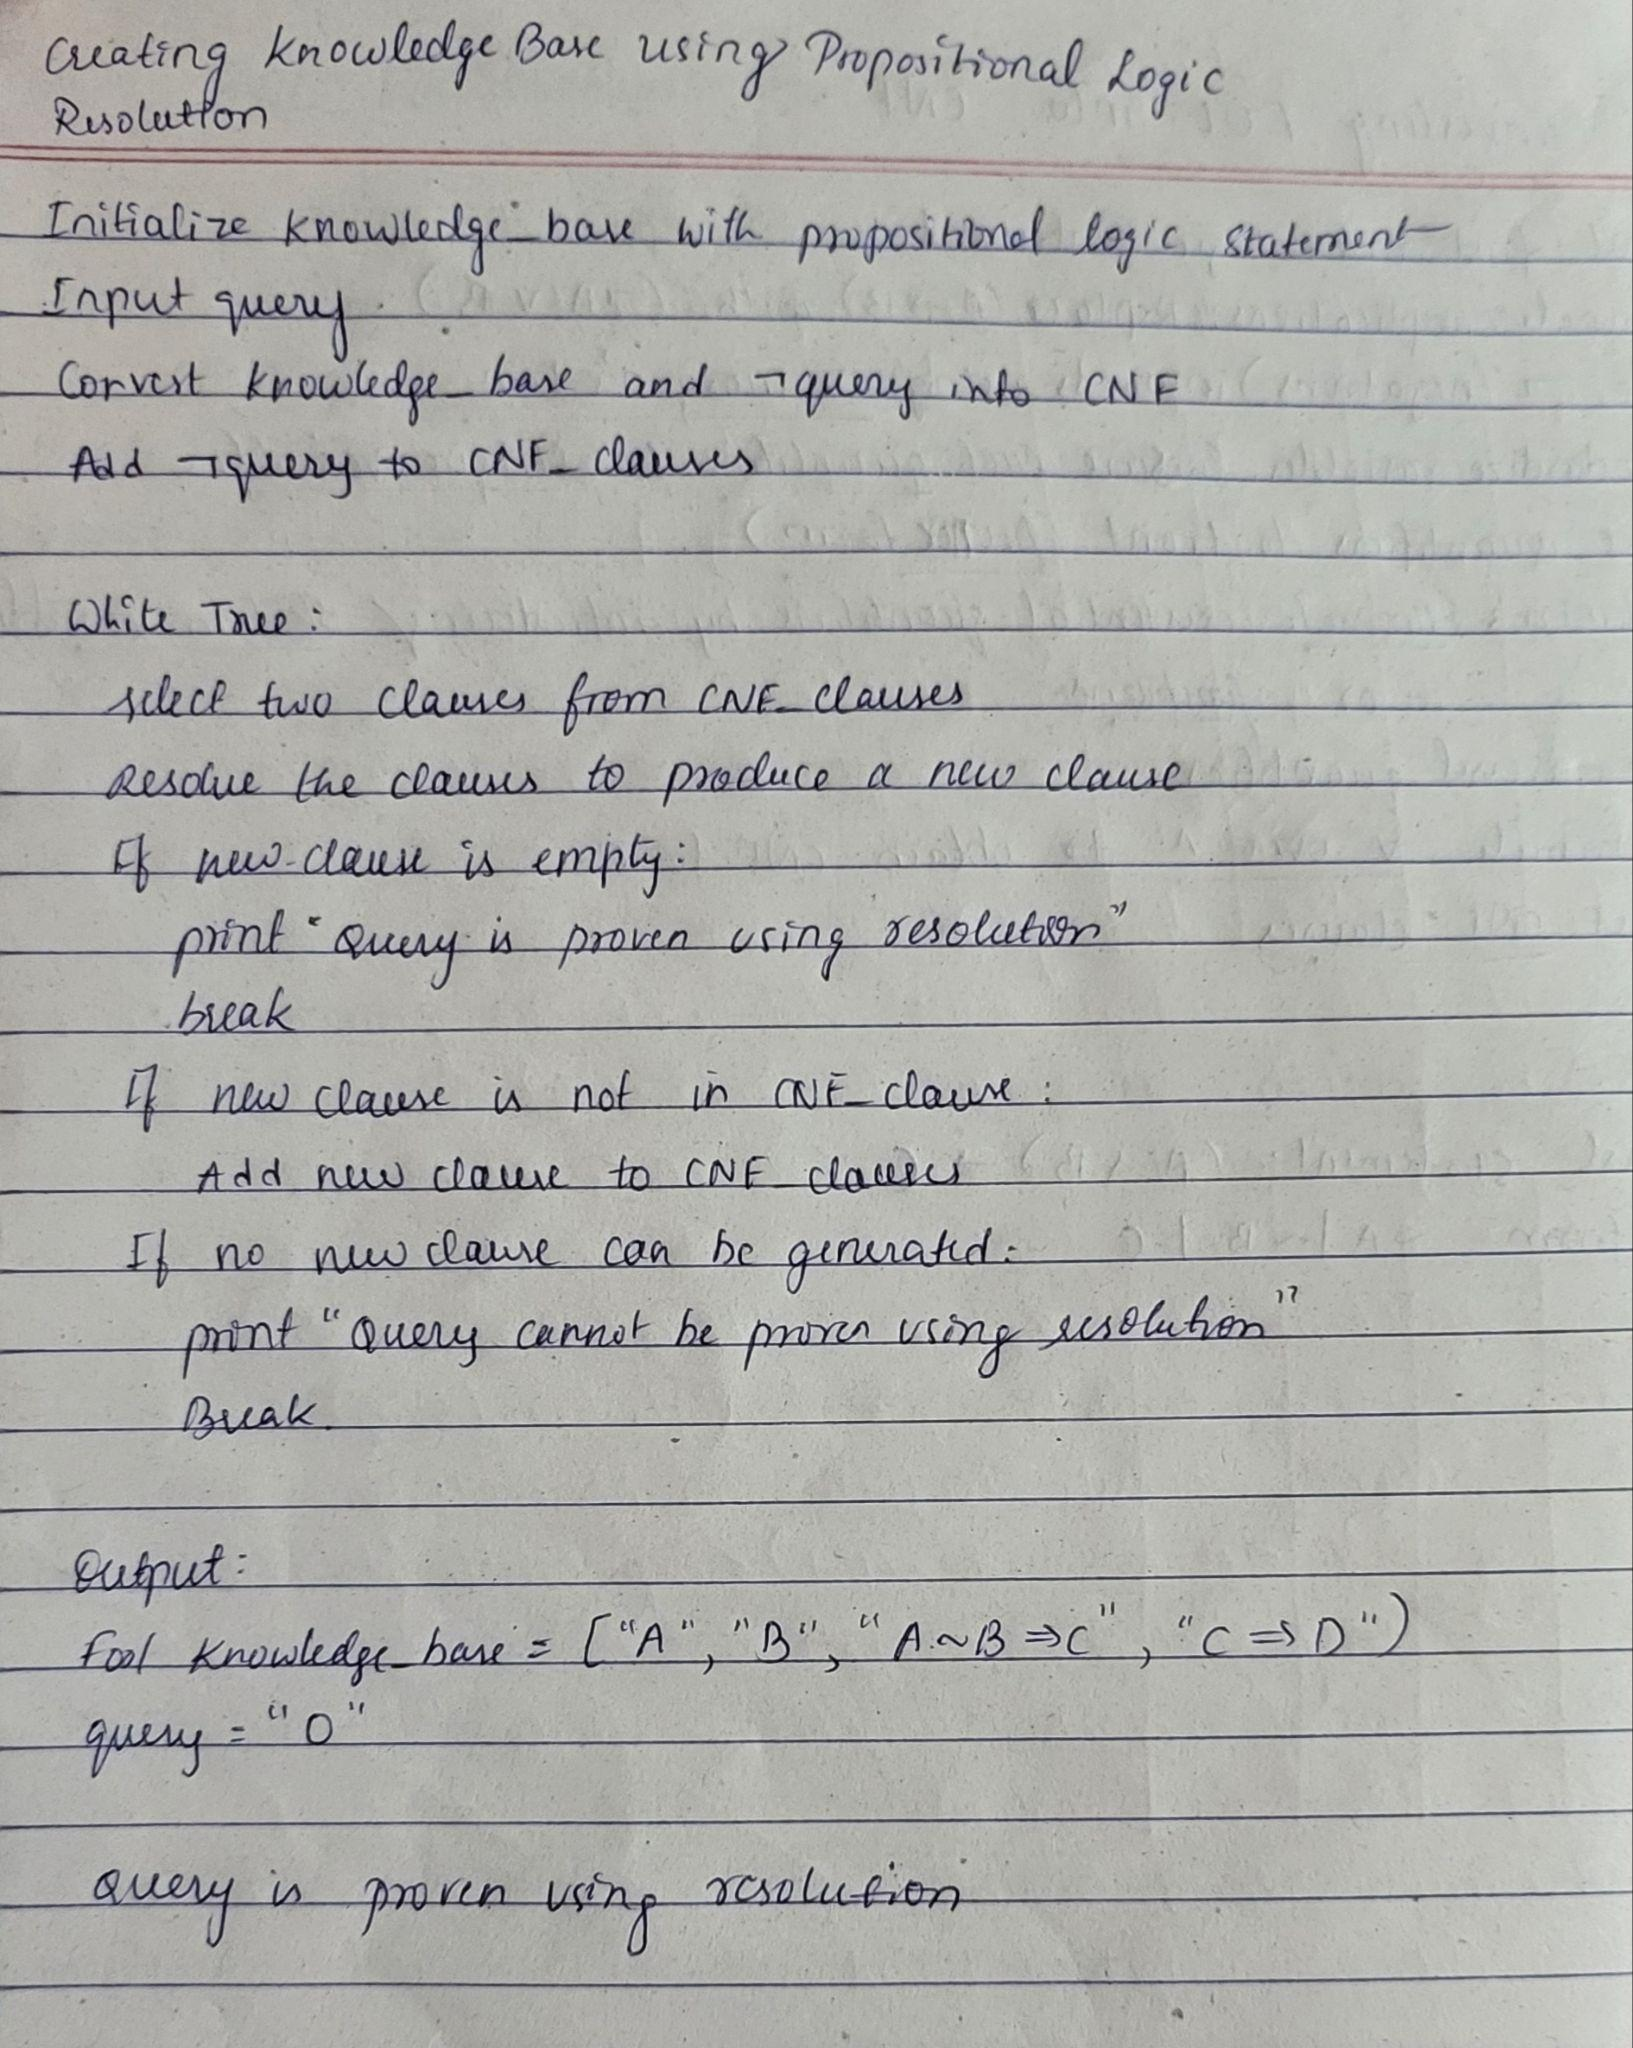 Creating Knowledge Base using Propositional Logic
Resolution
Initialize knowledge_base with propositional logic statement
Input query.
Convert knowledge_base and ¬query into CNF
Add ¬query to CNF_clauses
White True:
select two clauses from CNF_clauses
Resolve the clauses to produce a new clause
If new-clause is empty:
print "Query is proven using resolution"
break
If new clause is not in CNF_clause:
Add new clause to CNF_clauses
If no new clause can be generated:
print "Query cannot be proven using resolution"
Break.
Output:
Fool knowledge_base = ["A", "B", "A~B ⇒C", "C⇒D")
query = "O"
Query is proven using resolution